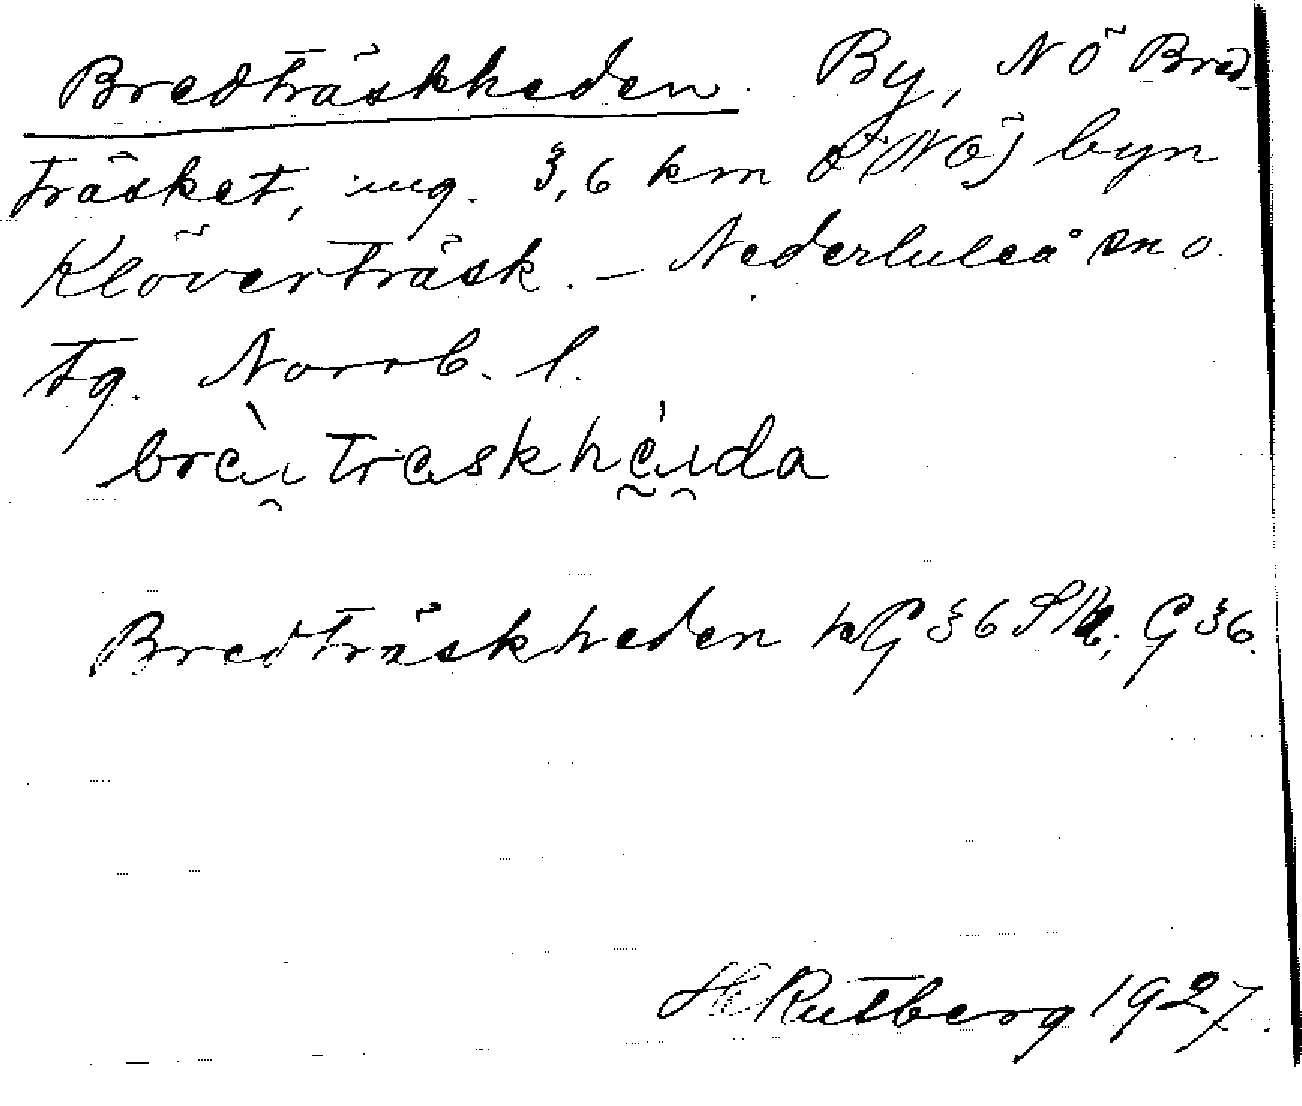 Bredträskheden. By, NÖ Bred
träsket, ung. 3,6 km Ö(NÖ) byn
Klöverträsk. – Nederluleå sn o.
tg. Norrb. l.
brèi̯traskhéi̯da
Bredträskheden G 36 G 36.
H Rutberg 1927.